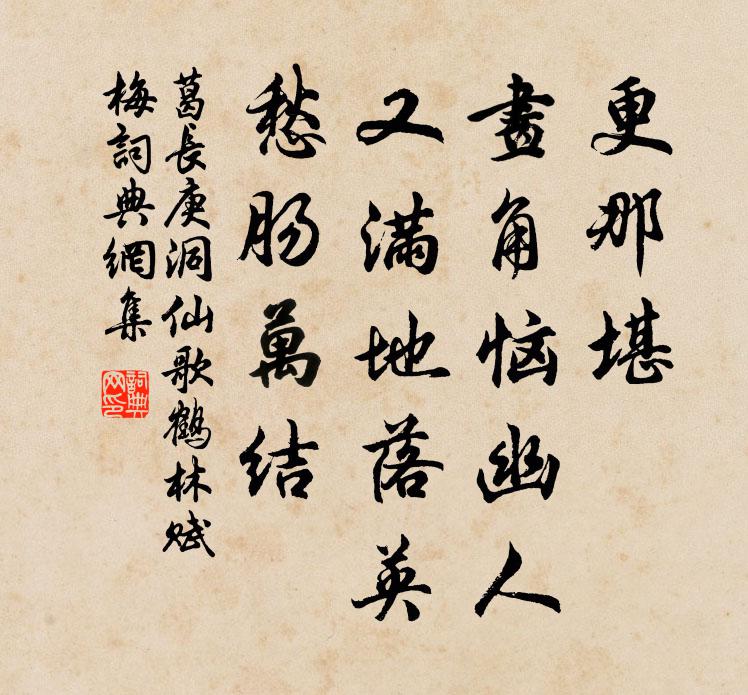 更那堪
畫角恼幽人
又满地落英
愁肠萬结
葛長庚洞仙歌鹤林赋
梅詞典網集
詞典
网印